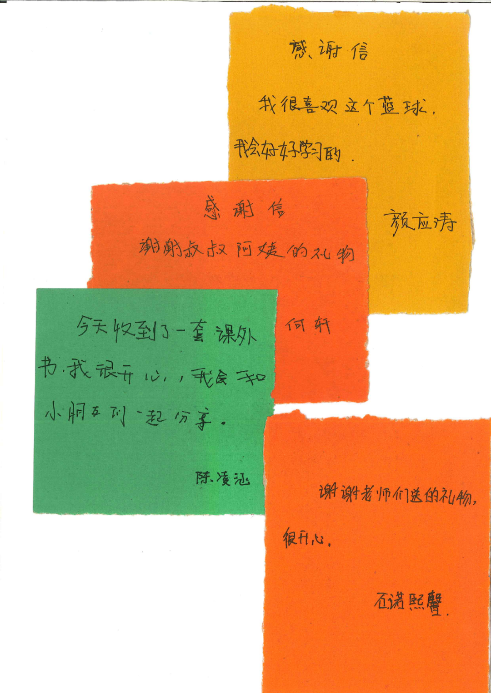 感谢信
我很喜欢这个蓝球.
我会好好学习的.
颜应涛
感谢信
谢谢叔叔阿姨的礼物
何轩
今天收到了一套课外
书.我很开心,我会和
小朋友们一起分享。
陈凌涵
谢谢老师们送的礼物,
很开心.
石诺熙馨.